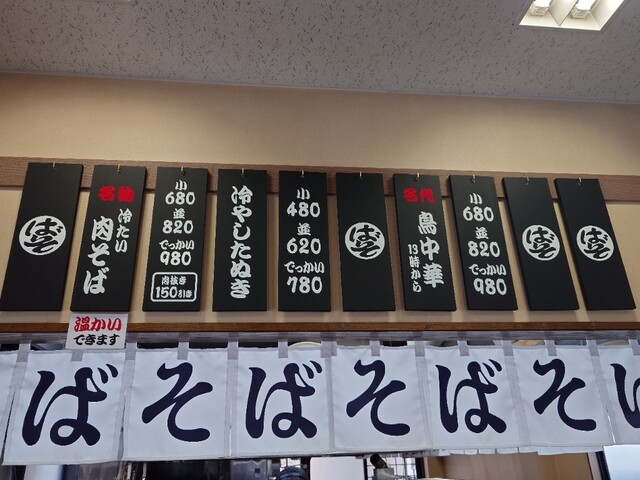 そば
名物
冷たい
肉そば
小
680
並
820
でっかい
980
肉抜き
150引き
冷やしたぬき
小
480
並
620
でっかい
780
そば
名代
鳥中華
13時から
小
680
並
820
でっかい
980
そば
そば
温かい
できます
ばそばそばそば